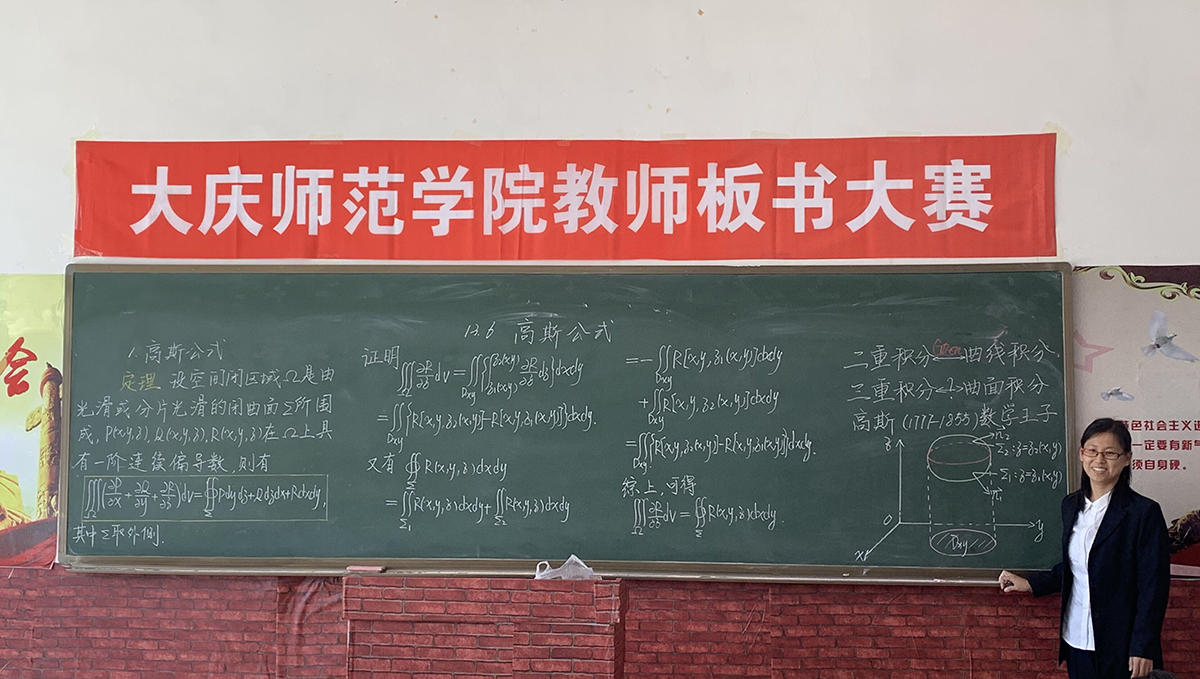 大庆师范学院教师板书大赛
12.6 高斯公式
1.高斯公式
定理 设空间闭区域Ω是由
光滑或分片光滑的闭曲面Σ所围
成, P(x,y,z), Q(x,y,z), R(x,y,z)在Ω上具
有一阶连续偏导数,则有
∭_Ω(∂P/∂x+∂Q/∂y+∂R/∂z)dv=∯_Σ Pdydz+Qdzdx+Rdxdy,
其中Σ取外侧.
证明 ∭_Ω ∂R/∂z dv=∬_Dxy{∫_{z₁(x,y)}^{z₂(x,y)} ∂R/∂z dz}dxdy
=∬_Dxy{R[x,y,z₂(x,y)]-R[x,y,z₁(x,y)]}dxdy.
又有 ∯_Σ R(x,y,z)dxdy
=∬_Σ₁ R(x,y,z)dxdy+∬_Σ₂ R(x,y,z)dxdy
=-∬_Dxy R[x,y,z₁(x,y)]dxdy
+∬_Dxy R[x,y,z₂(x,y)]dxdy
=∬_Dxy{R[x,y,z₂(x,y)]-R[x,y,z₁(x,y)]}dxdy.
综上,可得
∭_Ω ∂R/∂z dv=∯_Σ R(x,y,z)dxdy.
二重积分 Green 曲线积分
三重积分<-?->曲面积分
高斯(1777-1855)数学王子
z
n₂
Σ₂:z=z₂(x,y)
Σ₁:z=z₁(x,y)
n₁
O
y
x
Dxy
会
色社会主义进
一定要有新气
须自身硬。